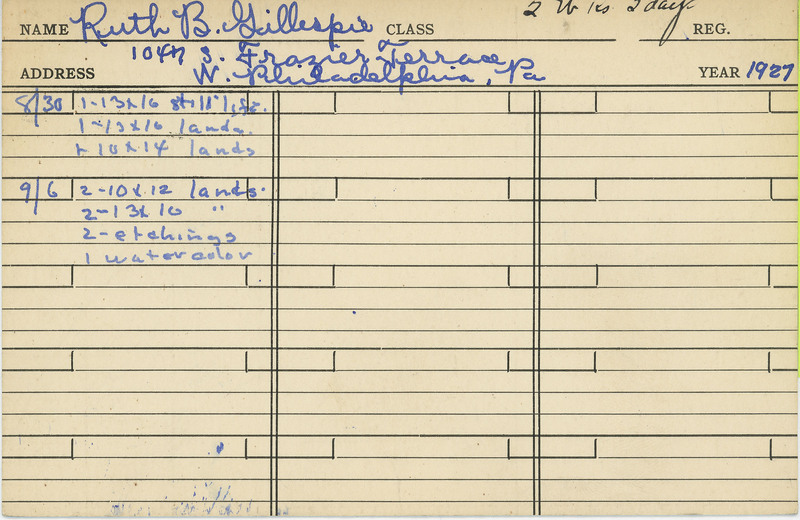 2 Wks 2 days
NAME Ruth B. Gillespie CLASS REG.
1047 S. Frazier Terrace
ADDRESS W. Philadelphia, Pa YEAR 1927
8/30 1-13x16 still life.
1-13x16 lands.
1-10x14 lands
9/6 2-10x12 lands.
2-13x16 "
2-etchings
1 watercolor